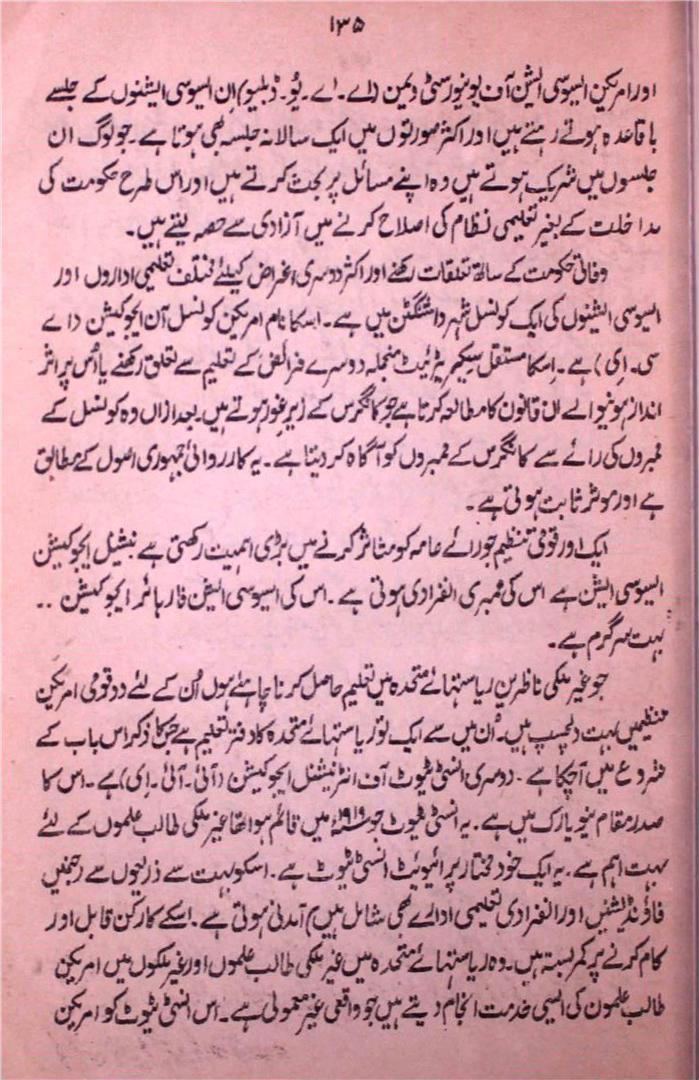 ۱۳۵
اور امریکین ایسوسی ایشن آف یونیورسٹی ویمن (اے۔اے۔یُو۔ڈبلیو) اِن ایسوسی ایشنوں کے جلسے
باقاعدہ ہوتے رہتے ہیں اور اکثر صورتوں میں ایک سالانہ جلسہ بھی ہوتا ہے۔ جو لوگ ان
جلسوں میں شریک ہوتے ہیں وہ اپنے مسائل پر بحث کرتے ہیں اور اس طرح حکومت کی
مداخلت کے بغیر تعلیمی نظام کی اصلاح کرنے میں آزادی سے حصہ لیتے ہیں۔
وفاقی حکومت کے ساتھ تعلقات رکھنے اور اکثر دوسری اغراض کیلئے مختلف تعلیمی اداروں اور
ایسوسی ایشنوں کی ایک کونسل شہر واشنگٹن میں ہے۔ اسکا نام امریکین کونسل آن ایجوکیشن (اے
سی۔ اِی) ہے۔ اِسکا مستقل سیکریٹریٹ منجملہ دوسرے فرائض کے تعلیم سے تعلق رکھنے یا اُس پر اثر
انداز ہونیوالے ان قانون کا مطالعہ کرتا ہے جو کانگرس کے زیرِ غور ہوتے ہیں۔ بعد ازاں وہ کونسل کے
ممبروں کی رائے سے کانگرس کے ممبروں کو آگاہ کر دیتا ہے۔ یہ کارروائی جمہوری اصول کے مطابق
ہے اور موثر ثابت ہوتی ہے۔
ایک اور قومی تنظیم جو رائے عامہ کو متاثر کرنے میں بڑی اہمیت رکھتی ہے نیشنل ایجوکیشن
ایسوسی ایشن ہے اس کی ممبری انفرادی ہوتی ہے۔ اس کی ایسوسی ایشن فار ہائر ایجوکیشن ۔۔
بہت سرگرم ہے۔
جو غیر ملکی ناظرین ریاستہائے متحدہ میں تعلیم حاصل کرنا چاہتے ہوں اُن کے لئے دو قومی امریکین
تنظیمیں بہت دلچسپ ہیں۔ اُن میں سے ایک تو ریاستہائے متحدہ کا دفتر تعلیم ہے جس کا ذکر اس باب کے
شروع میں آچکا ہے۔ دوسری انسٹی ٹیوٹ آف انٹرنیشنل ایجوکیشن (آئی۔آئی۔اِی) ہے۔ اس کا
صدر مقام نیو یارک میں ہے۔ یہ انسٹی ٹیوٹ جو ۱۹۱۹ء میں قائم ہوا تھا غیر ملکی طالب علموں کے لئے
بہت اہم ہے۔ یہ ایک خود مختار پرائیویٹ انسٹی ٹیوٹ ہے۔ اسکو بہت سے ذریعوں سے (جنمیں
فاؤنڈیشنیں اور انفرادی تعلیمی ادارے بھی شامل ہیں) آمدنی ہوتی ہے۔ اسکے کارکن قابل اور
کام کرنے پر کمر بستہ ہیں۔ وہ ریاستہائے متحدہ میں غیر ملکی طالب علموں اور غیر ملکوں میں امریکین
طالب علموں کی ایسی خدمت انجام دیتے ہیں جو واقعی غیر معمولی ہے۔ اس انسٹی ٹیوٹ کو امریکین